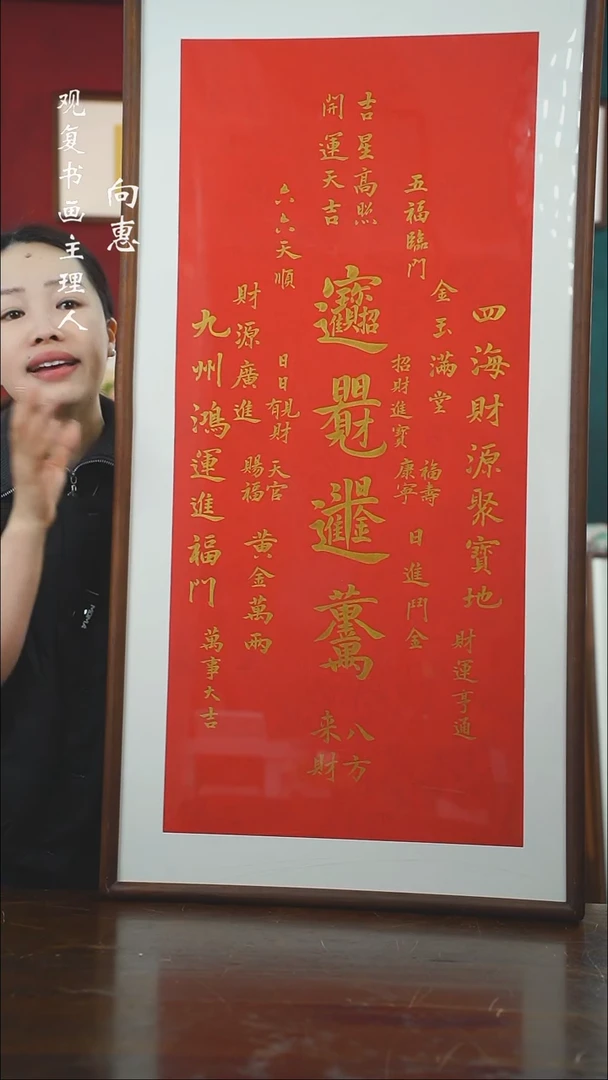 观复书画主理人
向惠
吉星高照
開運天吉
五福臨門
六六天順
四海財源聚寶地
金玉滿堂
招財進寶
福壽康寧
日進鬥金
財運亨通
八方来財
日日有見財
天官賜福
黃金萬兩
財源廣進
九州鴻運進福門
萬事大吉